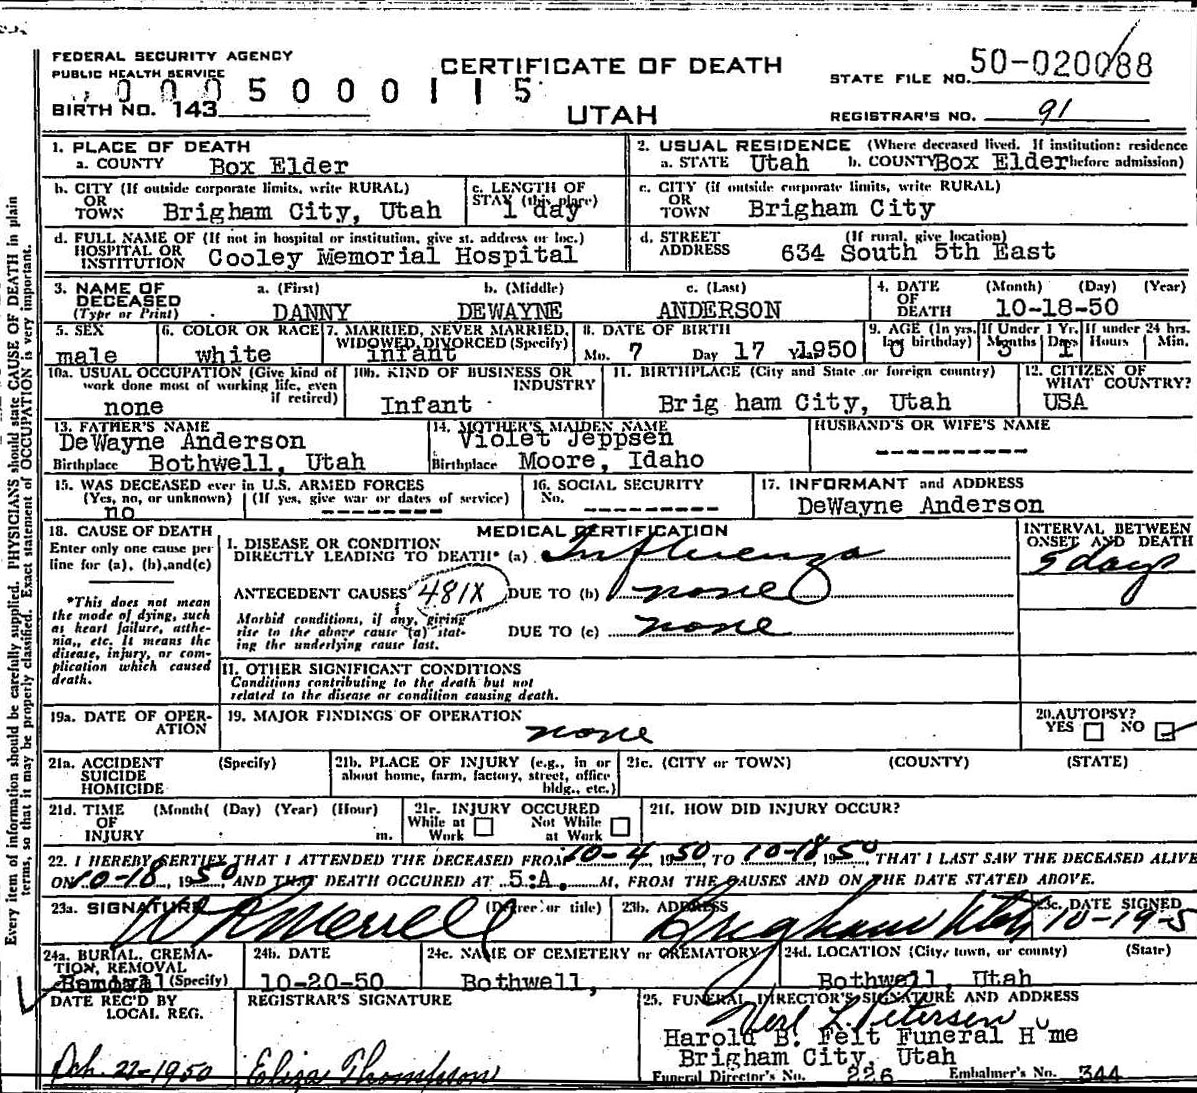 FEDERAL SECURITY AGENCY
PUBLIC HEALTH SERVICE
CERTIFICATE OF DEATH
STATE FILE NO. 50-020088
0005000115
BIRTH NO. 143
UTAH
REGISTRAR'S NO. 91
1. PLACE OF DEATH
a. COUNTY Box Elder
2. USUAL RESIDENCE (Where deceased lived. If institution: residence
a. STATE Utah b. COUNTY Box Elder before admission)
b. CITY (If outside corporate limits, write RURAL)
OR
TOWN Brigham City, Utah
c. LENGTH OF
STAY (this place)
1 day
c. CITY (if outside corporate limits, write RURAL)
OR
TOWN Brigham City
d. FULL NAME OF (If not in hospital or institution, give st. address or loc.)
HOSPITAL OR
INSTITUTION Cooley Memorial Hospital
d. STREET (If rural, give location)
ADDRESS 634 South 5th East
3. NAME OF
DECEASED
(Type or Print)
a. (First) b. (Middle) c. (Last)
DANNY DEWAYNE ANDERSON
4. DATE (Month) (Day) (Year)
OF
DEATH 10-18-50
5. SEX
male
6. COLOR OR RACE
white
7. MARRIED, NEVER MARRIED,
WIDOWED, DIVORCED (Specify)
infant
8. DATE OF BIRTH
Mo. 7 Day 17 Year 1950
9. AGE (In yrs.
last birthday)
0
If Under 1 Yr.
Months Days
3 1
If under 24 hrs.
Hours Min.
10a. USUAL OCCUPATION (Give kind of
work done most of working life, even
if retired)
none
10b. KIND OF BUSINESS OR
INDUSTRY
Infant
11. BIRTHPLACE (City and State or foreign country)
Brig ham City, Utah
12. CITIZEN OF
WHAT COUNTRY?
USA
13. FATHER'S NAME
DeWayne Anderson
Birthplace Bothwell, Utah
14. MOTHER'S MAIDEN NAME
Violet Jeppsen
Birthplace Moore, Idaho
HUSBAND'S OR WIFE'S NAME
----------
15. WAS DECEASED ever in U.S. ARMED FORCES
(Yes, no, or unknown) (If yes, give war or dates of service)
no --------
16. SOCIAL SECURITY
No.
---------
17. INFORMANT and ADDRESS
DeWayne Anderson
18. CAUSE OF DEATH
Enter only one cause per
line for (a), (b), and (c)
*This does not mean
the mode of dying, such
as heart failure, asthe-
nia, etc. It means the
disease, injury, or com-
plication which caused
death.
MEDICAL CERTIFICATION
I. DISEASE OR CONDITION
DIRECTLY LEADING TO DEATH* (a) Influenza
ANTECEDENT CAUSES 481X DUE TO (b) none
Morbid conditions, if any, giving
rise to the above cause (a) stat-
ing the underlying cause last.
DUE TO (c) none
INTERVAL BETWEEN
ONSET AND DEATH
5 days
II. OTHER SIGNIFICANT CONDITIONS
Conditions contributing to the death but not
related to the disease or condition causing death.
19a. DATE OF OPER-
ATION
19. MAJOR FINDINGS OF OPERATION
none
20. AUTOPSY?
YES NO
21a. ACCIDENT (Specify)
SUICIDE
HOMICIDE
21b. PLACE OF INJURY (e.g., in or
about home, farm, factory, street, office
bldg., etc.)
21c. (CITY or TOWN) (COUNTY) (STATE)
21d. TIME (Month( (Day) (Year) (Hour)
OF
INJURY m.
21e. INJURY OCCURED
While at Not While
Work at Work
21f. HOW DID INJURY OCCUR?
22. I HEREBY CERTIFY THAT I ATTENDED THE DECEASED FROM 10-4, 1950 TO 10-18 1950, THAT I LAST SAW THE DECEASED ALIVE
ON 10-18, 1950, AND THAT DEATH OCCURED AT 5:A. M, FROM THE CAUSES AND ON THE DATE STATED ABOVE.
23a. SIGNATURE (Degree or title)
Merrell
23b. ADDRESS
Brigham Utah
23c. DATE SIGNED
10-19-5
24a. BURIAL, CREMA-
TION, REMOVAL
(Specify)
24b. DATE
10-20-50
24c. NAME OF CEMETERY or CREMATORY
Bothwell,
24d. LOCATION (City, town, or county) (State)
Bothwell, Utah
DATE REC'D BY
LOCAL REG.
Oct. 22-1950
REGISTRAR'S SIGNATURE
Eliza Thompson
25. FUNERAL DIRECTOR'S SIGNATURE AND ADDRESS
Verl L. Petersen
Harold B. Felt Funeral Home
Brigham City, Utah
Funeral Director's No. 226 Embalmer's No. 344
Every item of information should be carefully supplied. PHYSICIANS should state CAUSE OF DEATH in plain
terms, so that it may be properly classified. Exact statement of OCCUPATION is very important.